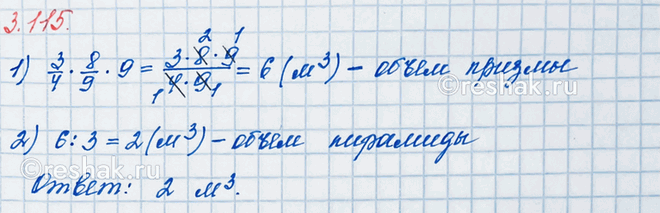 3.115.
1) 3/4 · 8/9 · 9 = (3 · 8 · 9)/(4 · 9) 2 1 1 1 = 6 (м³) – объем призмы
2) 6 : 3 = 2 (м³) – объем пирамиды
Ответ: 2 м³.
reshak.ru